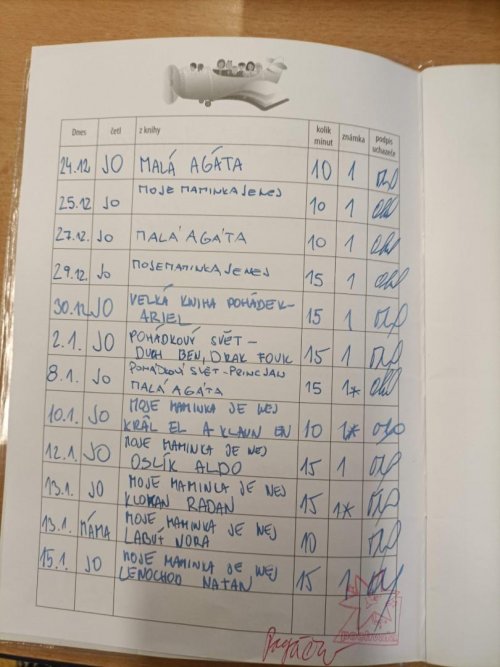 Dnes četl z knihy kolik minut známka podpis uchazeče
24.12 JO MALÁ AGÁTA 10 1
25.12 JO MOJE MAMINKA JE NEJ 10 1
27.12. JO MALÁ AGÁTA 10 1
29.12. JO MOJE MAMINKA JE NEJ 15 1
30.12 JO VELKÁ KNIHA POHÁDEK-
ARIEL 15 1
2.1. JO POHÁDKOVÝ SVĚT -
DUCH BEN, DRAK FOUIK 15 1
8.1. JO POHÁDKOVÝ SVĚT - PRINC JAN
MALÁ AGÁTA 15 1*
10.1. JO MOJE MAMINKA JE NEJ
KRÁL EL A KLAUN EN 10 1*
12.1. JO MOJE MAMINKA JE NEJ
OSLÍK ALDO 15 1
13.1. JO MOJE MAMINKA JE NEJ
KLOKAN RADAN 15 1*
13.1. MÁMA MOJE MAMINKA JE NEJ
LABUŤ NORA 10
15.1. JO MOJE MAMINKA JE NEJ
LENOCHOD NATAN 15 1